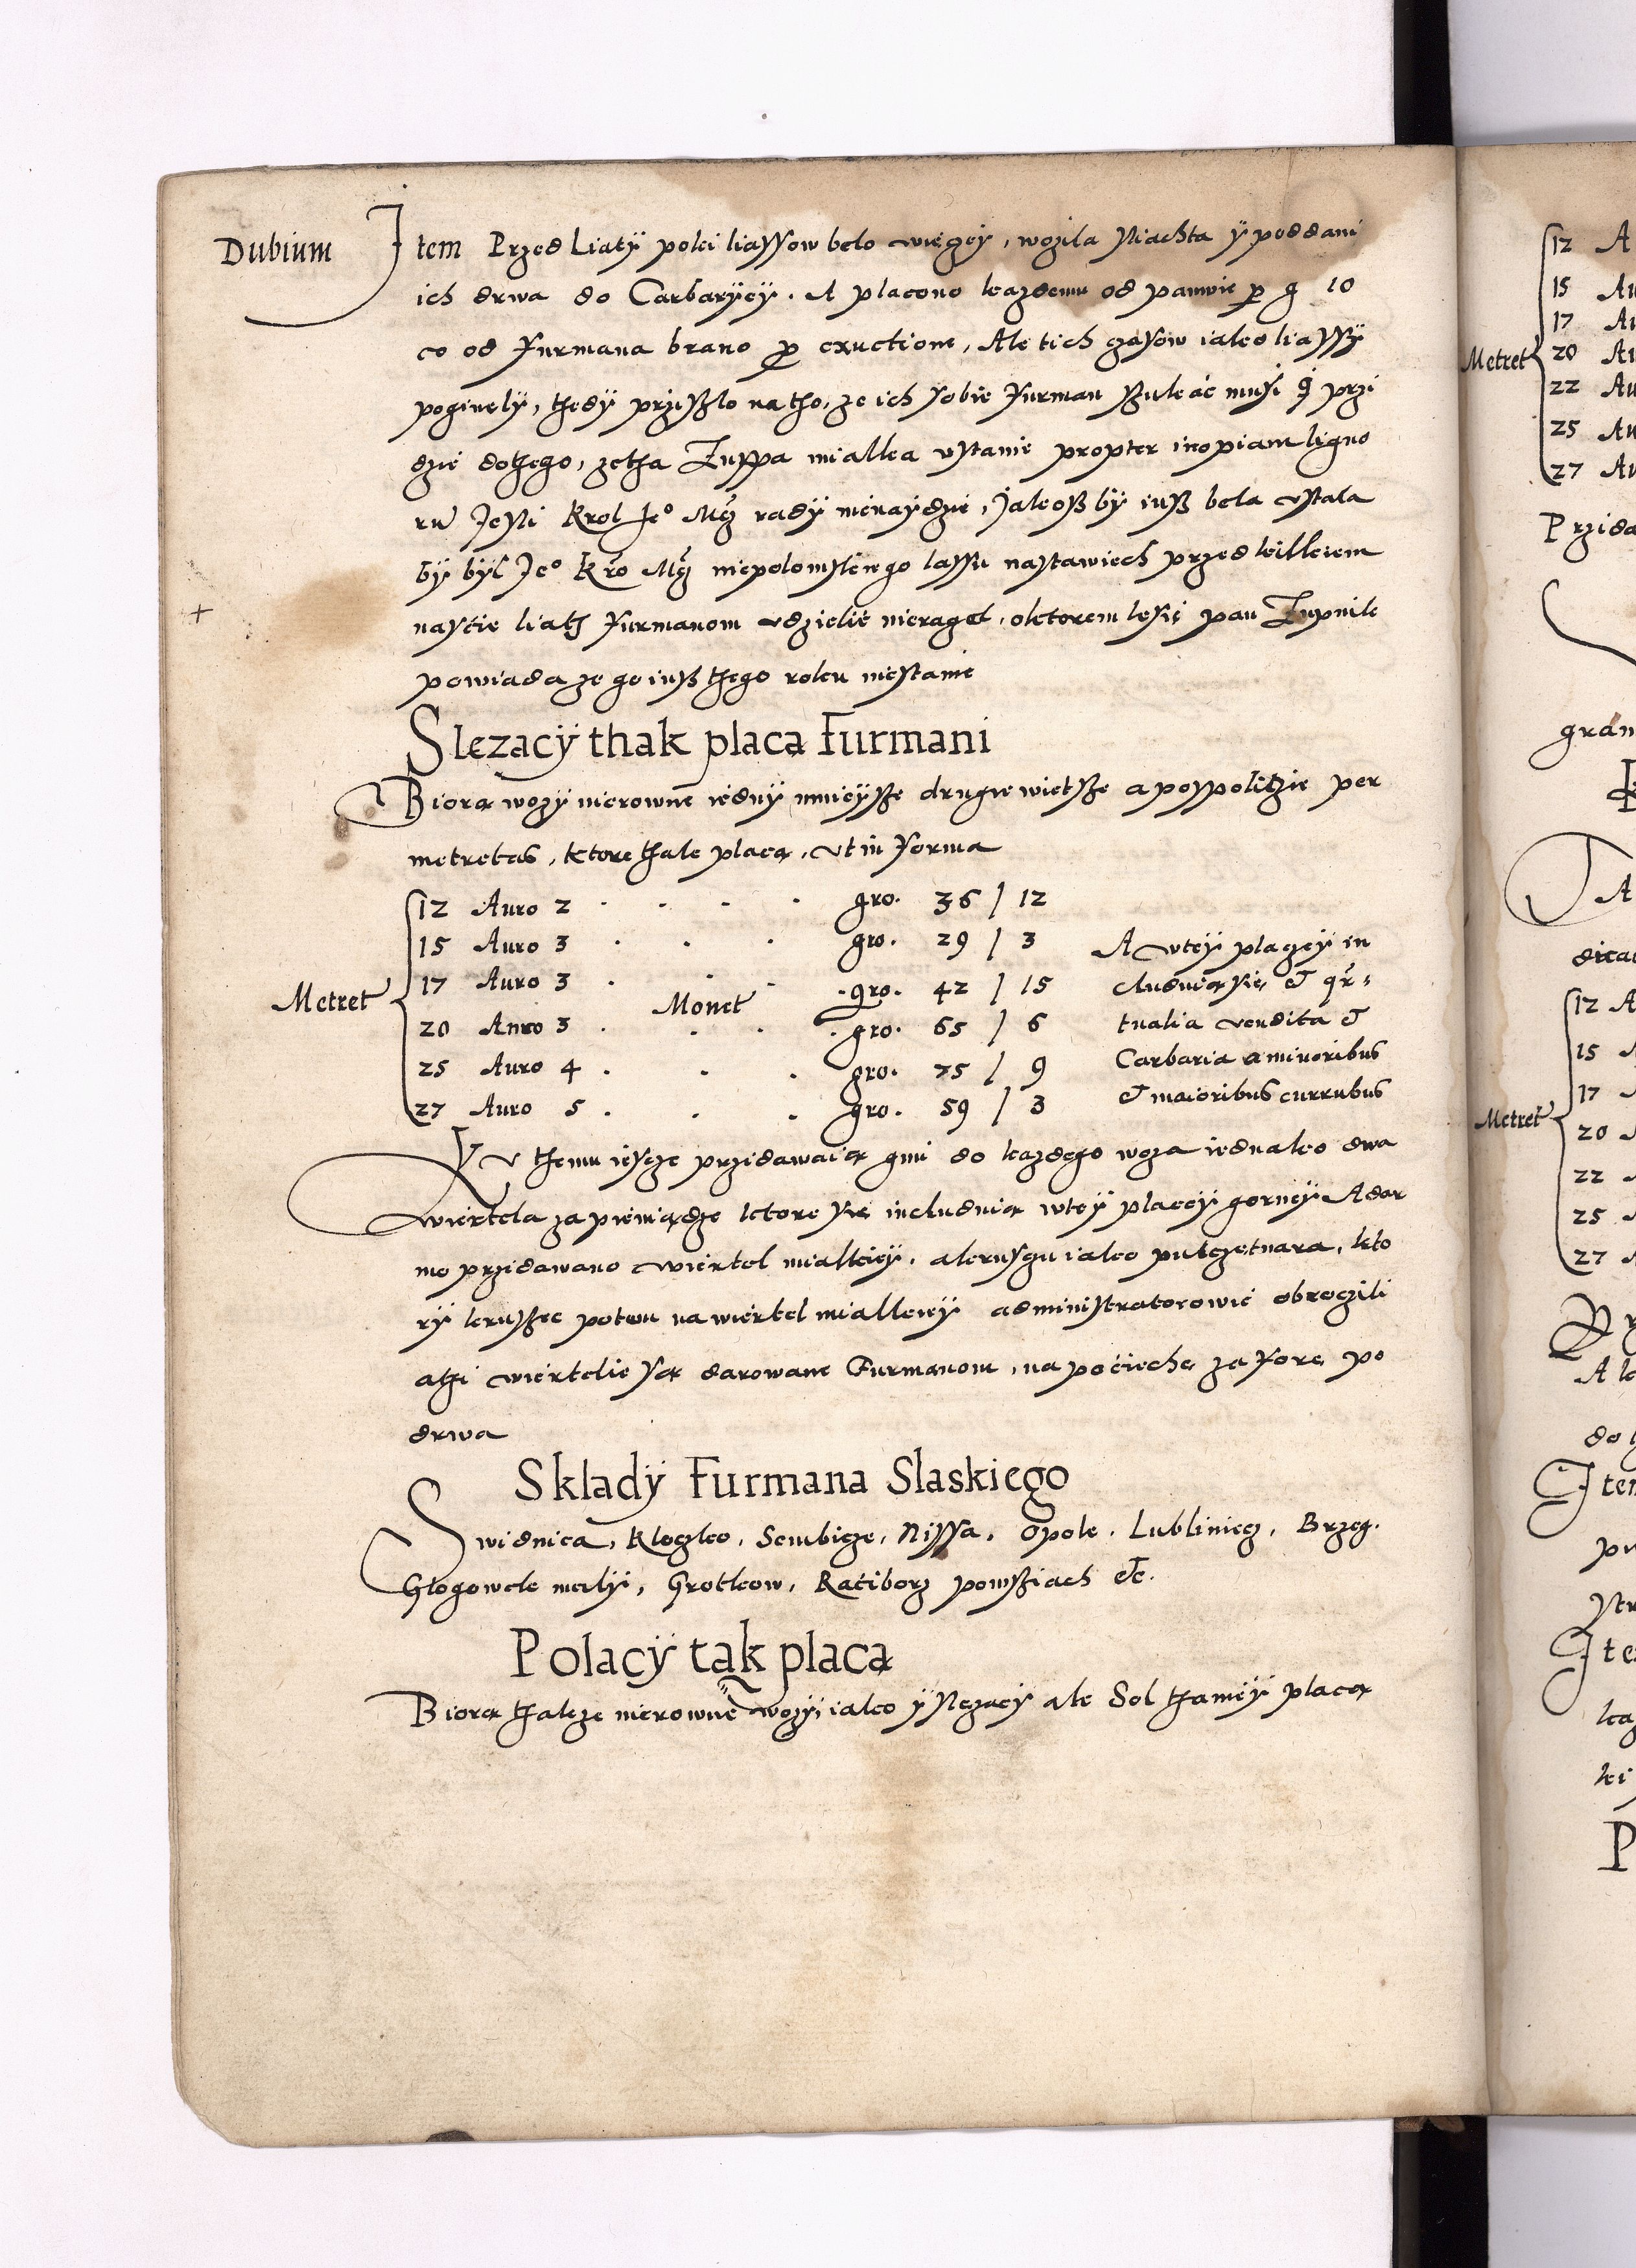 Dubium Item Przed Liaty poki liassow belo więczey, wozila sliachta y poddani
ich drwa do Carbaryey. A placono kazdemu od panwie p g 10
co od furmana brano p eructione, Ale tich czasow iako liassy
poginely, thedy przyszlo na tho, ze ich sobie furman szukać musi
dzie dothego, zetha Zuppa miałka ustanie propter inopiam ligno
ru Jesli Krol Jeo Mcz rady nienaydzie, Jakosz by iusz bela ustala
by byl Jeo Kro Mcz niepolomskiego lassu nastawiech przed kilkiem
nascie liath furmanom udzielić nieraczel, oktorem lesie pan Zupnik
powiada ze go iusz thego roku niestanie
Slezacy thak placa Furmani
Biorą wozy nierowne iedny mnieysze drugie wietsze a pospolitzie per
metretas, ktore thak placą, ut in forma
Metret
12 Auro 2 . . . . gro. 36 / 12
15 Auro 3 . . . gro. 29 / 3
17 Auro 3 . . gro. 42 / 15
Monet
20 Auro 3 . . . gro. 65 / 6
25 Auro 4 . . . gro. 75 / 9
27 Auro 5 . . . gro. 59 / 3
A wtey placzey in
cluduią się et qr
tualia vendita et
Carbaria a minoribus
et maioribus currubus
Ku themu iescze przidawaią gmi do kazdego woza iednako dwa
wiertela za pieniądze ktore się includuią wtey placey gorney A dar
mo przidawano wiertel mialkiey, a krusczu iako pulczetnara, kto
ry kruszec potem na wiertel mialkiey administratorowie obroczili
athi wiertelie są darowane Furmanom, na pocieche za fore po
drwa
Sklady Furmana Slaskiego
Swidnica, Kloczko, Sembicze, Nissa, Opole, Lubliniecz, Brzeg.
Glogowek maly, Grotkow, Raciborz powsziach etc.
Polacy tak placa
Biorą thakze nierowne wozy, iako y slezacy ale Sol thaniey placą